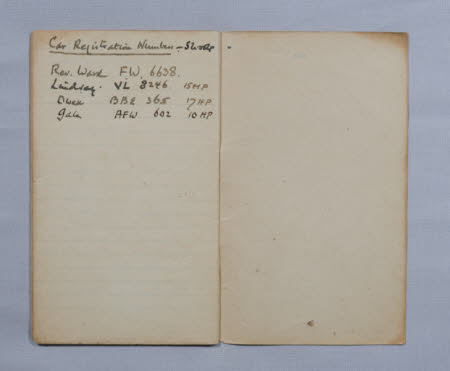 Car Registration Numbers -
Rev. Ward FW. 6638.
Lindsay. VL 8246 15HP
Owen BBE 365 17HP
Gale AFW 602 10HP